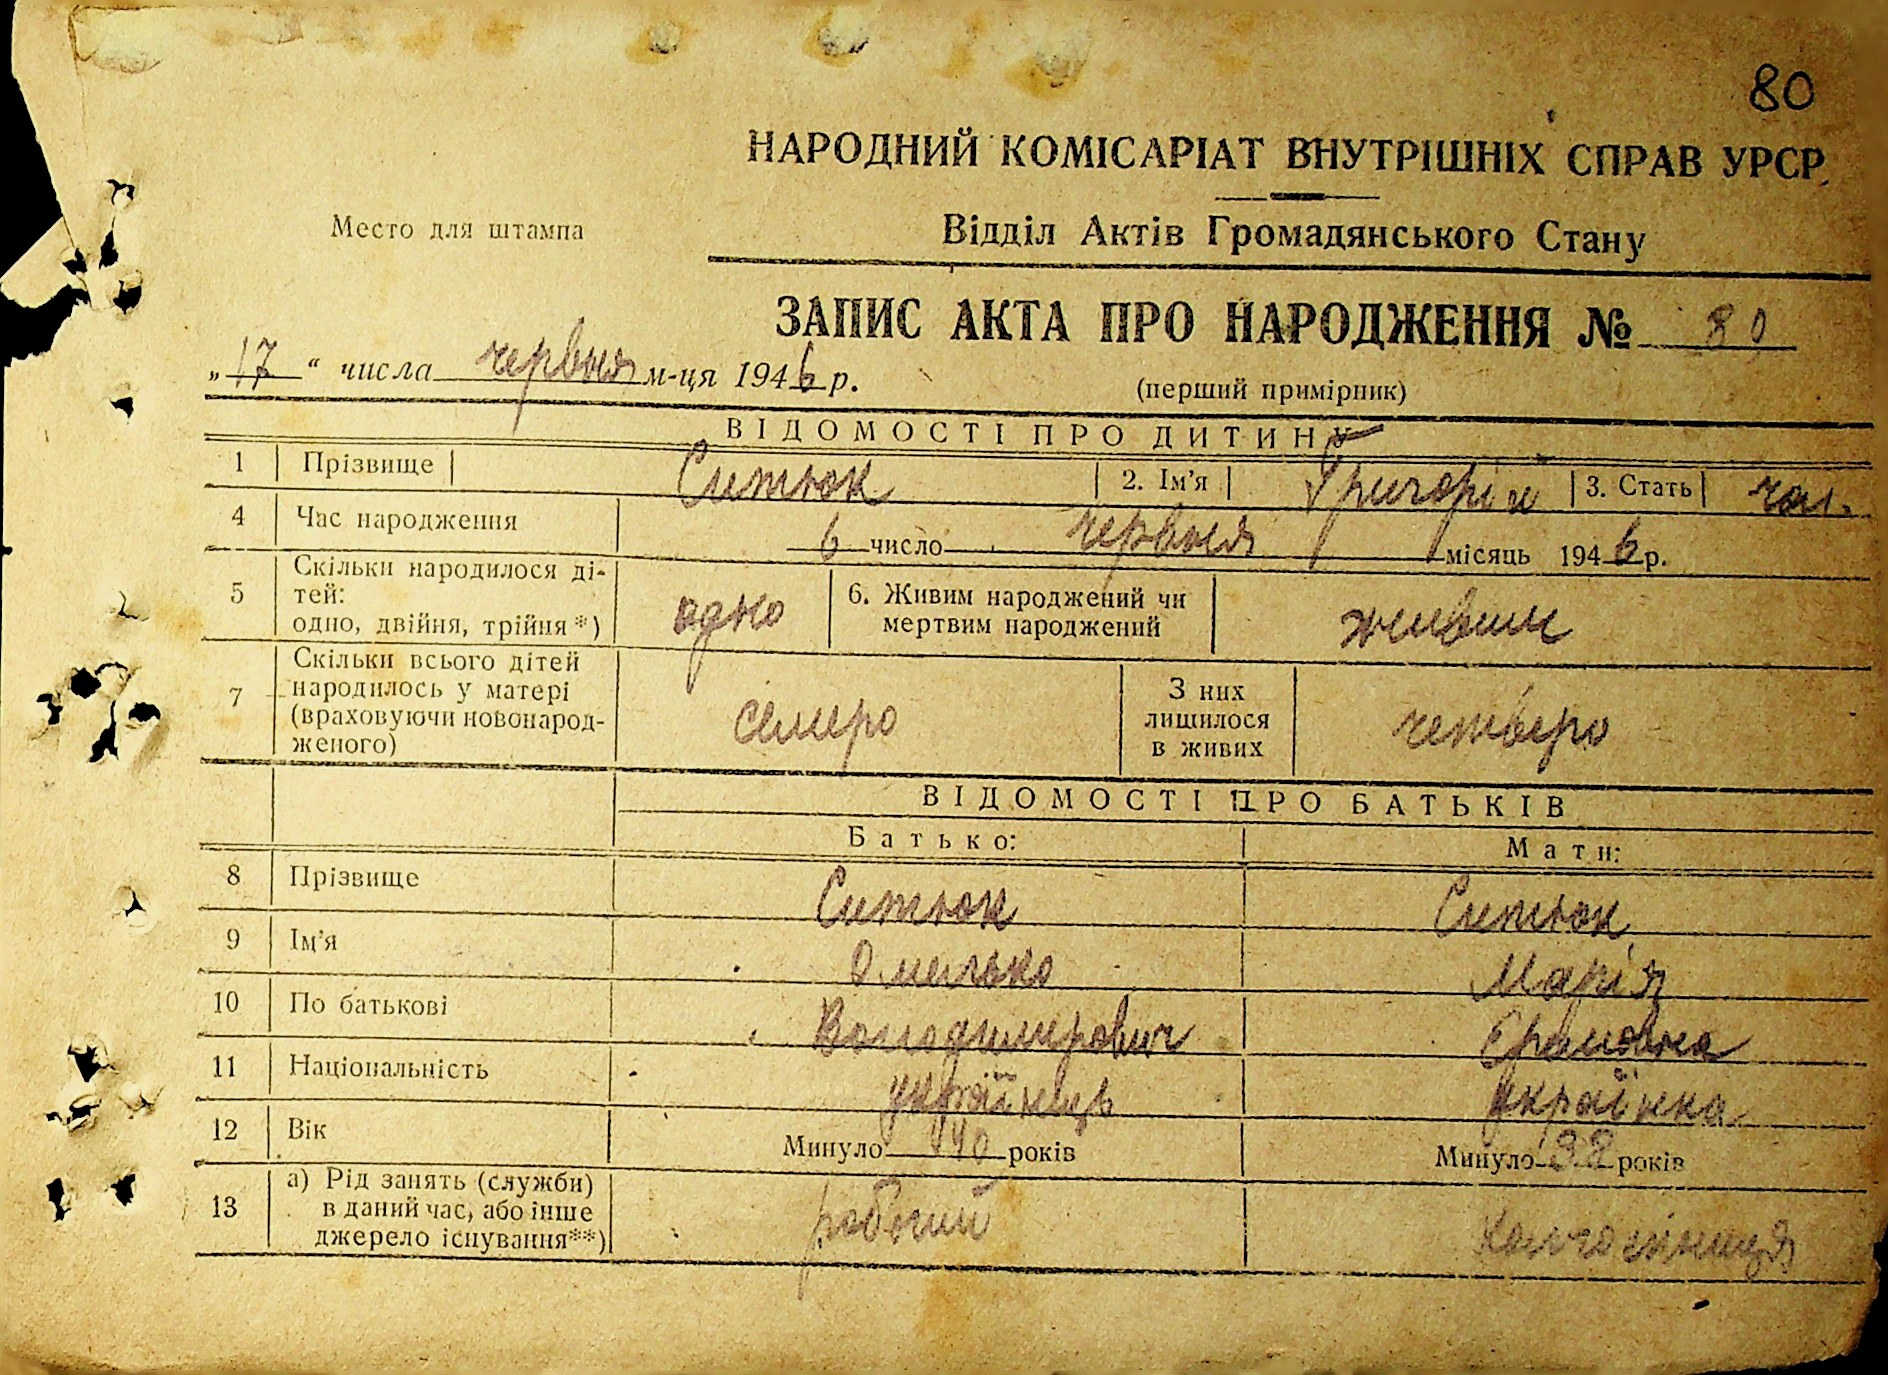 80
НАРОДНИЙ КОМІСАРІАТ ВНУТРІШНІХ СПРАВ УРСР
Место для штампа
Відділ Актів Громадянського Стану
ЗАПИС АКТА ПРО НАРОДЖЕННЯ № 80
„17“ числа червня м-ця 1946 р.
(перший примірник)
ВІДОМОСТІ ПРО ДИТИНУ
1 Прізвище Ситюк 2. Ім'я Григорій 3. Стать чол.
4 Час народження 6 число червня місяць 1946 р.
5 Скільки народилося ді-
тей:
одно, двійня, трійня*) одно 6. Живим народжений чи
мертвим народжений живим
7 Скільки всього дітей
народилось у матері
(враховуючи новонарод-
женого) семеро З них
лишилося
в живих четверо
ВІДОМОСТІ ПРО БАТЬКІВ
Батько: Мати:
8 Прізвище Ситюк Ситюк
9 Ім'я Омелько Марія
10 По батькові Володимирович
11 Національність українець українка
12 Вік Минуло 40 років Минуло 38 років
13 а) Рід занять (служби)
в даний час, або інше
джерело існування**) робочий колгоспниця